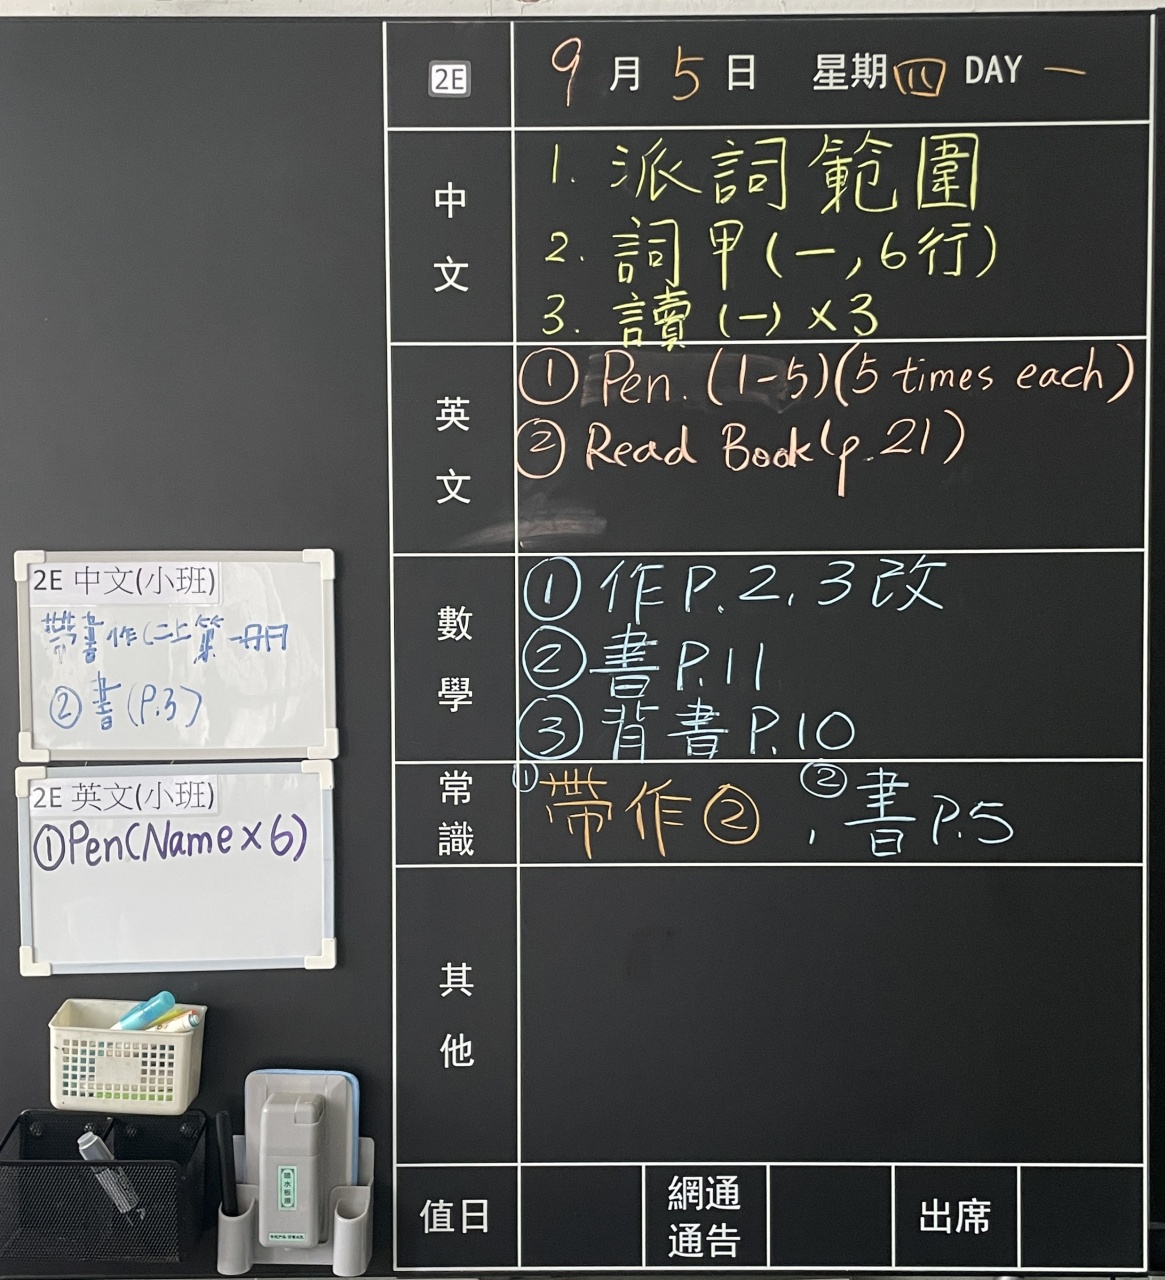 2E 9月5日 星期四 DAY 一
中文
1. 派詞範圍
2. 詞甲(一,6行)
3. 讀(一)×3
英文
① Pen. (1-5)(5 times each)
② Read Book(p.21)
數學
① 作P.2, 3改
② 書P.11
③ 背書P.10
常識
① 帶作② , ② 書P.5
其他
值日 網通通告 出席
2E 中文(小班)
帶書作(二上第一冊
② 書(P.3)
2E 英文(小班)
①Pen(Name×6)